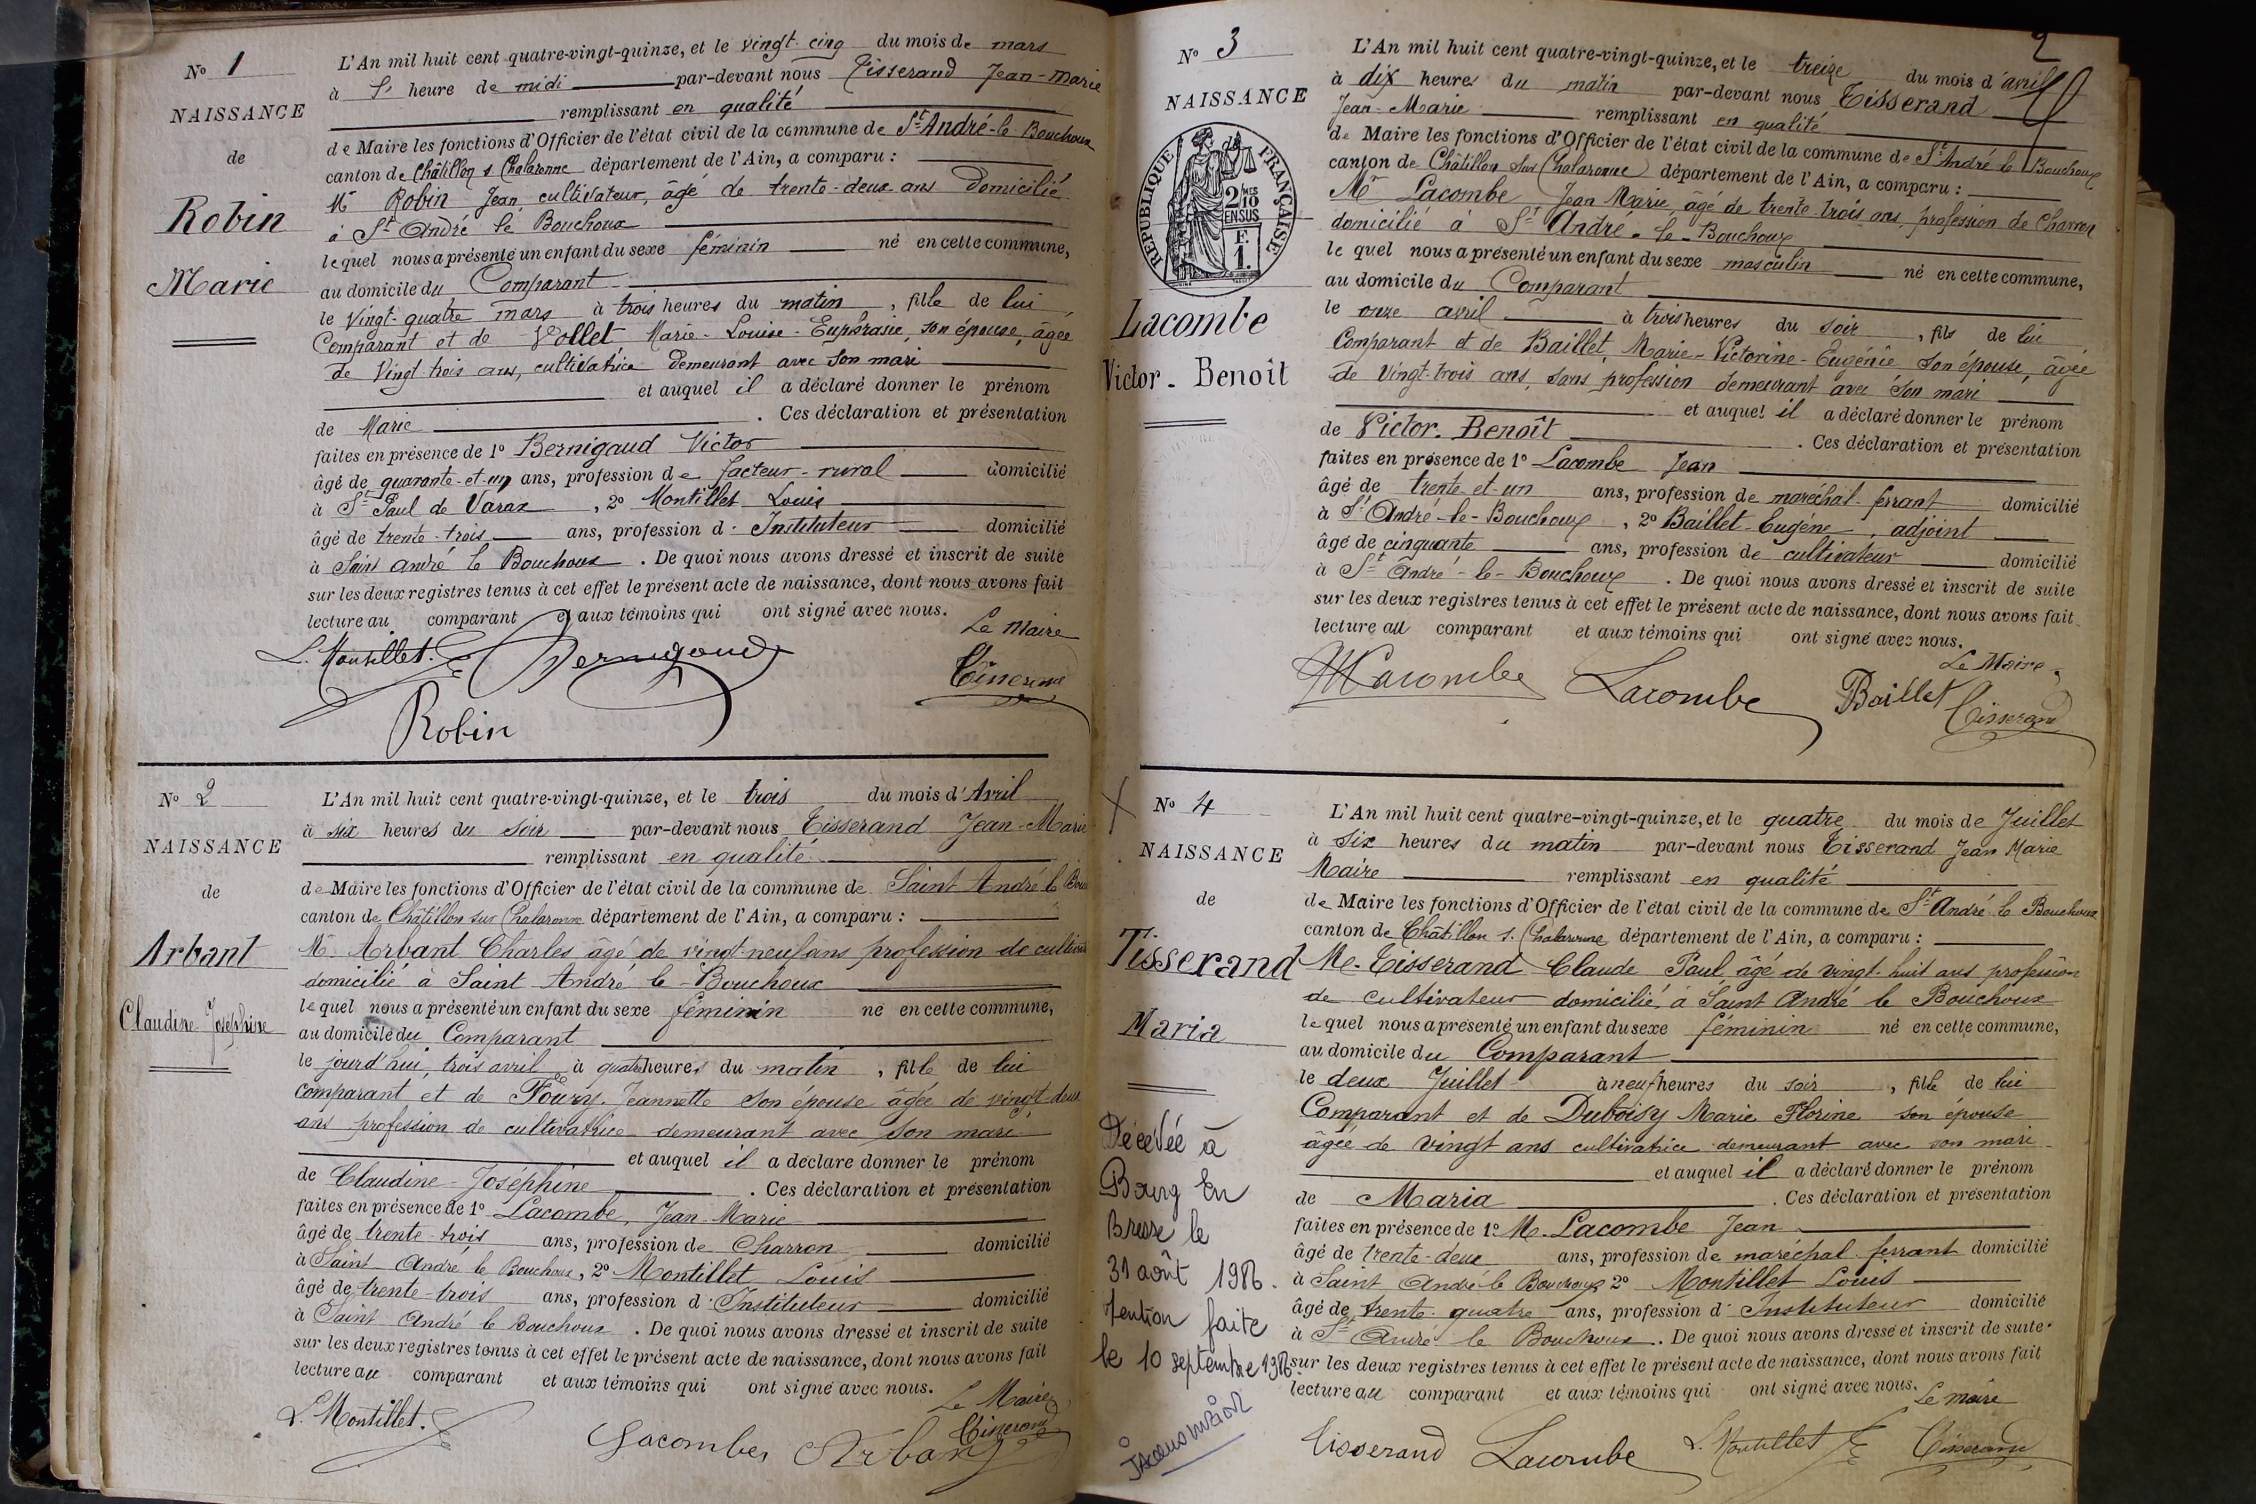 No 1
NAISSANCE
de
Robin
Marie
L'An mil huit cent quatre-vingt-quinze, et le vingt-cinq du mois de mars
à heure de midi par-devant nous Tisserand Jean-Marie
remplissant en qualité
de Maire les fonctions d'Officier de l'état civil de la commune de St André-le Bouchoux
canton de Châtillon s Chalaronne département de l'Ain, a comparu :
Mr Robin Jean, cultivateur, âgé de trente-deux ans domicilié
à St André le Bouchoux
lequel nous a présenté un enfant du sexe féminin né en cette commune,
au domicile du Comparant
le vingt-quatre mars à trois heures du matin, fille de lui
Comparant et de Vollet, Marie-Louise-Euphrasie, son épouse, âgée
de vingt trois ans, cultivatrice demeurant avec son mari
et auquel il a déclaré donner le prénom
de Marie . Ces déclaration et présentation
faites en présence de 1o Bernigaud Victor
âgé de quarante-et-un ans, profession de facteur-rural domicilié
à St Paul de Varax, 2o Montillet Louis
âgé de trente-trois ans, profession d'Instituteur domicilié
à Saint André le Bouchoux. De quoi nous avons dressé et inscrit de suite
sur les deux registres tenus à cet effet le présent acte de naissance, dont nous avons fait
lecture au comparant et aux témoins qui ont signé avec nous.
Le Maire
L. Montillet. Bernigaud Tisserand
Robin
No 2
NAISSANCE
de
Arbant
Claudine Joséphine
L'An mil huit cent quatre-vingt-quinze, et le trois du mois d'Avril
à six heures du soir par-devant nous Tisserand Jean-Marie
remplissant en qualité
de Maire les fonctions d'Officier de l'état civil de la commune de Saint André le
canton de Châtillon sur Chalaronne département de l'Ain, a comparu :
Mr Arbant Charles âgé de vingt-neuf ans profession de
domicilié à Saint André le Bouchoux
lequel nous a présenté un enfant du sexe féminin né en cette commune,
au domicile du Comparant
le jourd'hui, trois avril à quatre heures du matin, fille de lui
comparant et de Foury, Jeannette son épouse âgée de vingt-deux
ans profession de cultivatrice demeurant avec son mari
et auquel il a déclaré donner le prénom
de Claudine-Joséphine . Ces déclaration et présentation
faites en présence de 1o Lacombe, Jean-Marie
âgé de trente-trois ans, profession de Charron domicilié
à Saint André le Bouchoux, 2o Montillet Louis
âgé de trente-trois ans, profession d'Instituteur domicilié
à Saint André le Bouchoux. De quoi nous avons dressé et inscrit de suite
sur les deux registres tenus à cet effet le présent acte de naissance, dont nous avons fait
lecture au comparant et aux témoins qui ont signé avec nous.
Le Maire
L. Montillet. Lacombe Arbant Tisserand
2
No 3
NAISSANCE
de
RÉPUBLIQUE FRANÇAISE
2 MES
10
EN SUS
F.
1.
Lacombe
Victor-Benoît
L'An mil huit cent quatre-vingt-quinze, et le treize du mois d'avril
à dix heures du matin par-devant nous Tisserand
Jean-Marie remplissant en qualité
de Maire les fonctions d'Officier de l'état civil de la commune de St André le Bouchoux
canton de Châtillon sur Chalaronne département de l'Ain, a comparu :
Mr Lacombe Jean Marie âgé de trente-trois ans, profession de Charron
domicilié à St André-le-Bouchoux
lequel nous a présenté un enfant du sexe masculin né en cette commune,
au domicile du Comparant
le onze avril à trois heures du soir, fils de lui
Comparant et de Baillet, Marie-Victorine-Eugénie son épouse, âgée
de vingt-trois ans, sans profession demeurant avec son mari
et auquel il a déclaré donner le prénom
de Victor-Benoît . Ces déclaration et présentation
faites en présence de 1o Lacombe Jean
âgé de trente-et-un ans, profession de maréchal-ferrant domicilié
à St André-le-Bouchoux, 2o Baillet Eugène, adjoint
âgé de cinquante ans, profession de cultivateur domicilié
à St André-le-Bouchoux. De quoi nous avons dressé et inscrit de suite
sur les deux registres tenus à cet effet le présent acte de naissance, dont nous avons fait
lecture au comparant et aux témoins qui ont signé avec nous.
Le Maire,
Lacombe Lacombe Baillet Tisserand
X
No 4
NAISSANCE
de
Tisserand
Maria
Décédée à
Bourg en
Bresse le
31 août 1986.
Mention faite
le 10 septembre 1986.
L'An mil huit cent quatre-vingt-quinze, et le quatre du mois de Juillet
à six heures du matin par-devant nous Tisserand Jean Marie
Maire remplissant en qualité
de Maire les fonctions d'Officier de l'état civil de la commune de St André le Bouchoux
canton de Châtillon s. Chalaronne département de l'Ain, a comparu :
Mr Tisserand Claude Paul âgé de vingt-huit ans profession
de cultivateur domicilié à Saint André le Bouchoux
lequel nous a présenté un enfant du sexe féminin né en cette commune,
au domicile du Comparant
le deux Juillet à neuf heures du soir, fille de lui
Comparant et de Duboisy Marie Florine son épouse
âgée de vingt ans cultivatrice demeurant avec son mari
et auquel il a déclaré donner le prénom
de Maria . Ces déclaration et présentation
faites en présence de 1o Mr Lacombe Jean
âgé de trente-deux ans, profession de maréchal ferrant domicilié
à Saint André le Bouchoux 2o Montillet Louis
âgé de trente-quatre ans, profession d'Instituteur domicilié
à St André le Bouchoux. De quoi nous avons dressé et inscrit de suite
sur les deux registres tenus à cet effet le présent acte de naissance, dont nous avons fait
lecture au comparant et aux témoins qui ont signé avec nous.
Le maire
Tisserand Lacombe L. Montillet Tisserand